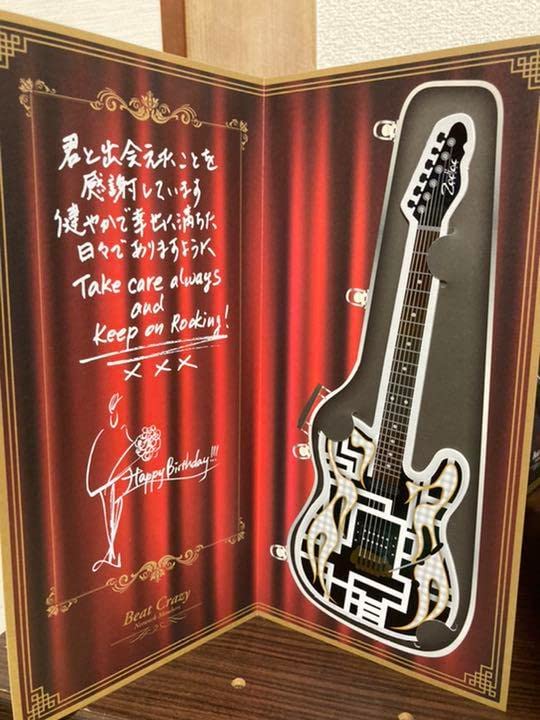 君と出会えたことを
感謝しています
健やかで幸せに満ちた
日々でありますように
Take care always
and
Keep on Rocking!
×××
Happy Birthday!!!
Beat Crazy
Network Members
Zodiac